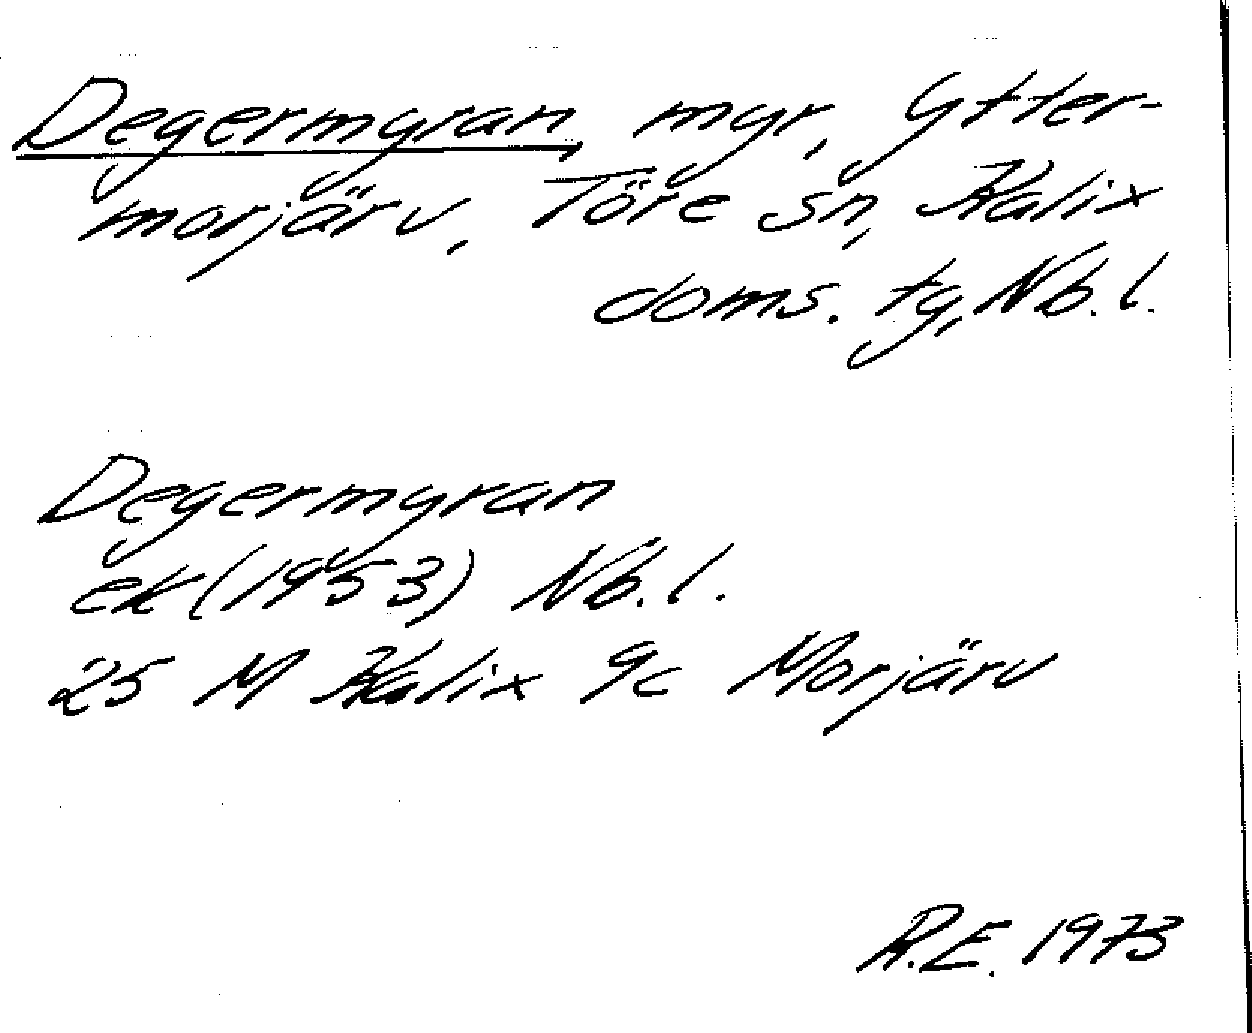 Degermyran, myr, Ytter-
morjärv, Töre sn, Kalix
doms. tg, Nb. l.
Degermyran
ek (1953) Nb. l.
25 M Kalix 9c Morjärv
R.E. 1973